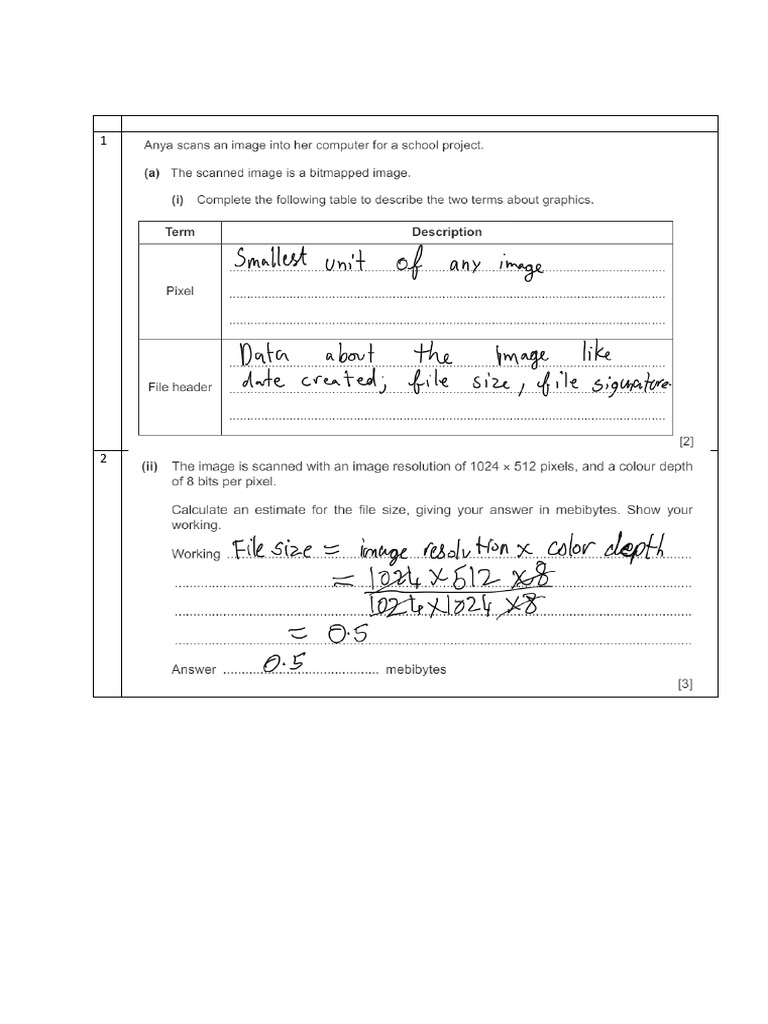 1
Anya scans an image into her computer for a school project.
(a) The scanned image is a bitmapped image.
(i) Complete the following table to describe the two terms about graphics.
Term Description
Pixel
Smallest unit of any image
File header
Data about the image like
date created, file size, file signature.
[2]
2
(ii) The image is scanned with an image resolution of 1024 × 512 pixels, and a colour depth
of 8 bits per pixel.
Calculate an estimate for the file size, giving your answer in mebibytes. Show your
working.
Working File size = image resolution x color depth
= 1024 x 512 x 8
1024 x 1024 x 8
= 0.5
Answer 0.5 mebibytes
[3]